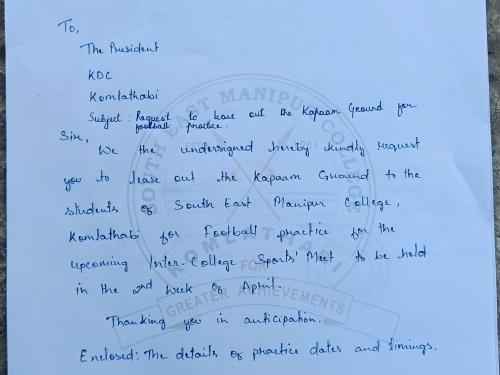 To,
The President
KDC
Komlathabi
Subject : Request to lease out the Kapaam Ground for
football practice.
Sir,
We the undersigned hereby kindly request
you to lease out the Kapaam Ground to the
students of South East Manipur College,
Komlathabi for Football practice for the
upcoming Inter-College Sports' Meet to be held
in the 2nd week of April.
Thanking you in anticipation.
Enclosed: The details of practice dates and timings.
SOUTH EAST MANIPUR COLLEGE
KOMLATHABI
FOR
GREATER ACHIEVEMENTS